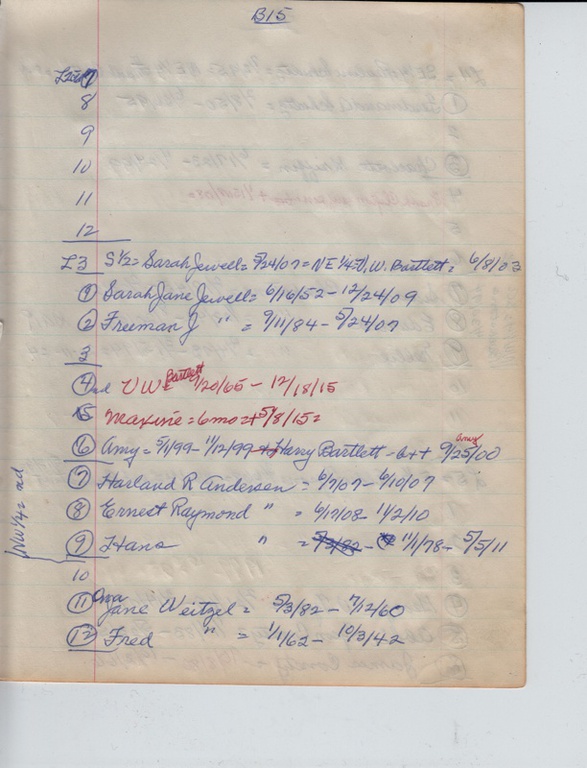 B15
7
8
9
10
11
12
L3 S½ = Sarah Jewell = 5/24/07 = NE ¼ = V. W. Bartlett = 6/8/03
1 Sarah Jane Jewell = 6/16/52 - 12/24/09
2 Freeman J " = 9/11/84 - 5/24/07
3
4 nd V W Bartlett = /20/65 - 12/18/15
5 Maxine = 6 mo = + 5/8/15 =
6 Amy = 5/1/99 - 11/12/99 Harry Bartlett - b + + Amy 9/25/00
7 Harland R Andersen = 6/7/07 - 6/10/07
8 Ernest Raymond " = 6/17/08 - 11/2/10
NW ¼ = nd
9 Hans " = 5/3/82 - 11/1/78 - 5/5/11
10
11 Jane Weitzel = 5/3/82 - 7/12/60
12 Fred " = 1/1/62 - 10/3/42